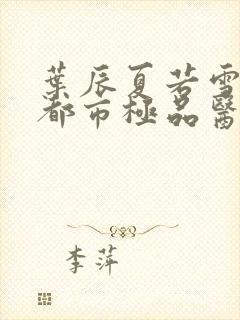 葉辰夏若雪
都市極品醫
李萍